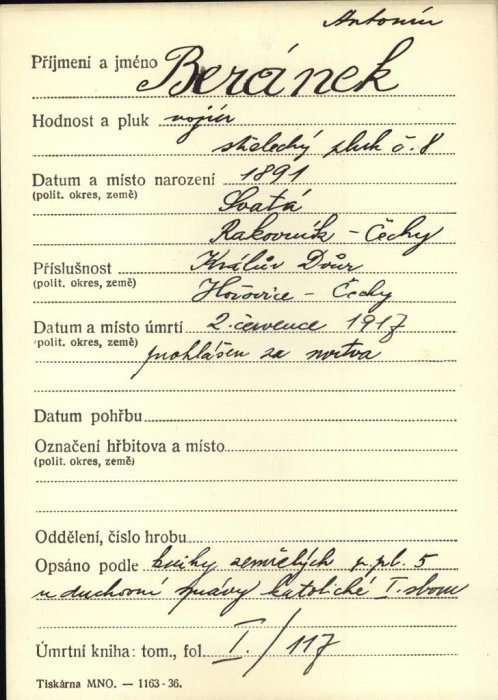 Antonín
Příjmení a jméno Beránek
Hodnost a pluk vojín
střelecký pluk č. 8
Datum a místo narození 1891
(polit. okres, země)
Svatá
Rakovník - Čechy
Příslušnost Králův Dvůr
(polit. okres, země)
Hořovice - Čechy
Datum a místo úmrtí 2. července 1917
(polit. okres, země)
prohlášen za mrtva
Datum pohřbu
Označení hřbitova a místo
(polit. okres, země)
Oddělení, číslo hrobu
Opsáno podle knihy zemřelých p. pl. 5
u duchovní správy katolické I. sboru
Úmrtní kniha: tom., fol. I./117
Tiskárna MNO. — 1163-36.